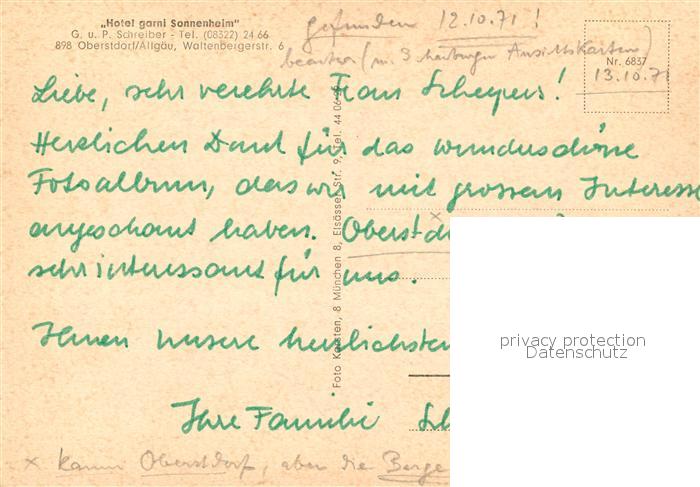 „Hotel garni Sonnenheim"
G. u. P. Schreiber - Tel. (08322) 24 66
898 Oberstdorf/Allgäu, Waltenbergerstr. 6
gefunden 12.10.71!
beantw (m. 3 Ansichtskarten)
Nr. 6837
13.10.71
Liebe, sehr verehrte Frau Schepers!
Herzlichen Dank für das wunderschöne
Fotoalbum, das wir mit grossem Interesse
angeschaut haben. Oberstd
sehr interessant für uns.
Ihnen unsere herzlichsten
Ihre Familie Sch
x kaum Oberstdorf, aber die Berge
Foto Kersten, 8 München 8, Elsässer Str. 9, Tel. 44 06
privacy protection
Datenschutz